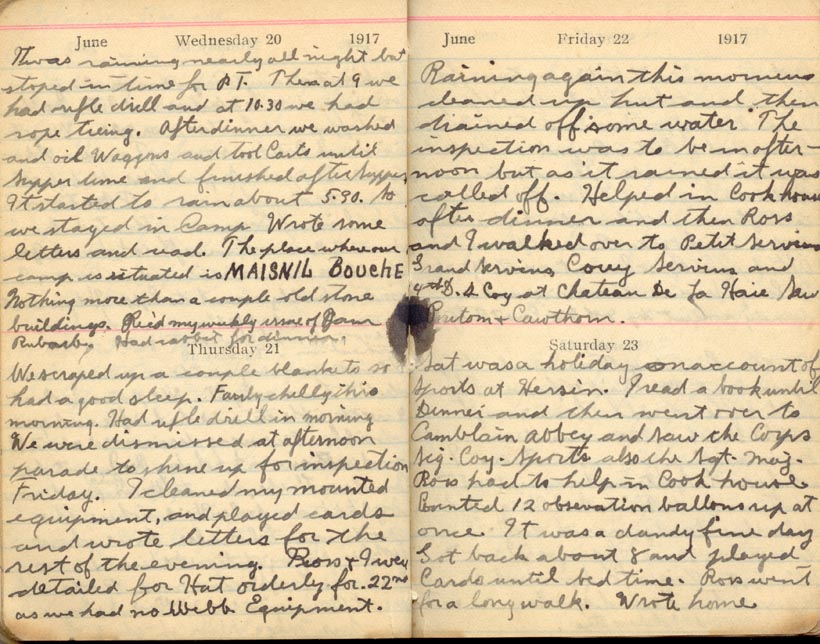 June Wednesday 20 1917
Twas raining nearly all night but
stoped in time for P.T. Then at 9 we
had rifle drill and at 10.30 we had
rope tieing. After dinner we washed
and oil Waggons and tool Carts until
supper time and finished after supper
It started to rain about 5.30. So
we stayed in Camp. Wrote some
letters and read. The place where our
camp is situated is MAISNIL BOUCHE
Nothing more than a couple old stone
buildings. Rec'd my weekly issue of Jam
Rubarb. Had rabbit for dinner.
Thursday 21
We scraped up a couple blankets so
had a good sleep. Fairly chilly this
morning. Had rifle drill in morning
We were dismissed at afternoon
parade to shine up for inspection
Friday. I cleaned my mounted
equipment, and played cards
and wrote letters for the
rest of the evening. Ross & I were
detailed for Hut orderly for 22nd
as we had no Webb Equipment.
June Friday 22 1917
Raining again this morning
cleaned up hut and then
drained off some water. The
inspection was to be in after-
noon but as it rained it was
called off. Helped in Cook house
after dinner and then Ross
and I walked over to Petit Servins
Grand Servins, Servins and
4th D. S Coy at Chateau De La Haie Saw
& Cawthorn.
Saturday 23
Sat was a holiday on account of
Sports at Hersin. I read a book until
Dinner and then went over to
Camblain Abbey and saw the Corps
Sig. Coy. Sports also the Sgt. Maj.
Ross had to help in Cook house.
Counted 12 obsevation ballons up at
once. It was a dandy fine day
Got back about 8 and played
Cards until bed time. Ross went
for a long walk. Wrote home.